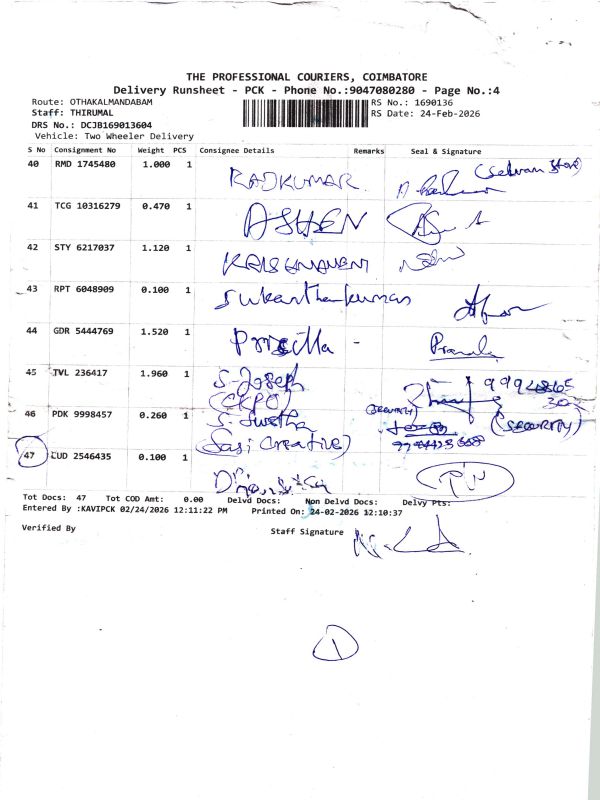 THE PROFESSIONAL COURIERS, COIMBATORE
Delivery Runsheet - PCK - Phone No.:9047080280 - Page No.:4
Route: OTHAKALMANDABAM RS No.: 1690136
Staff: THIRUMAL RS Date: 24-Feb-2026
DRS No.: DCJB169013604
Vehicle: Two Wheeler Delivery
S No Consignment No Weight PCS Consignee Details Remarks Seal & Signature
40 RMD 1745480 1.000 1 RAJKUMAR (Selvam Store)
41 TCG 10316279 0.470 1 ASHEN
42 STY 6217037 1.120 1 KRISHNAVENI
43 RPT 6048909 0.100 1 Sukanthankumar
44 GDR 5444769 1.520 1 Priscilla - Pramela
45 TVL 236417 1.960 1 S. Joseph
(CKPC)
46 PDK 9998457 0.260 1 S. Swetha (Security) (SECURITY)
(Sasi Creative)
47 LUD 2546435 0.100 1
Tot Docs: 47 Tot COD Amt: 0.00 Delvd Docs: Non Delvd Docs: Delvy Pts:
Entered By :KAVIPCK 02/24/2026 12:11:22 PM Printed On: 24-02-2026 12:10:37
Verified By Staff Signature
1